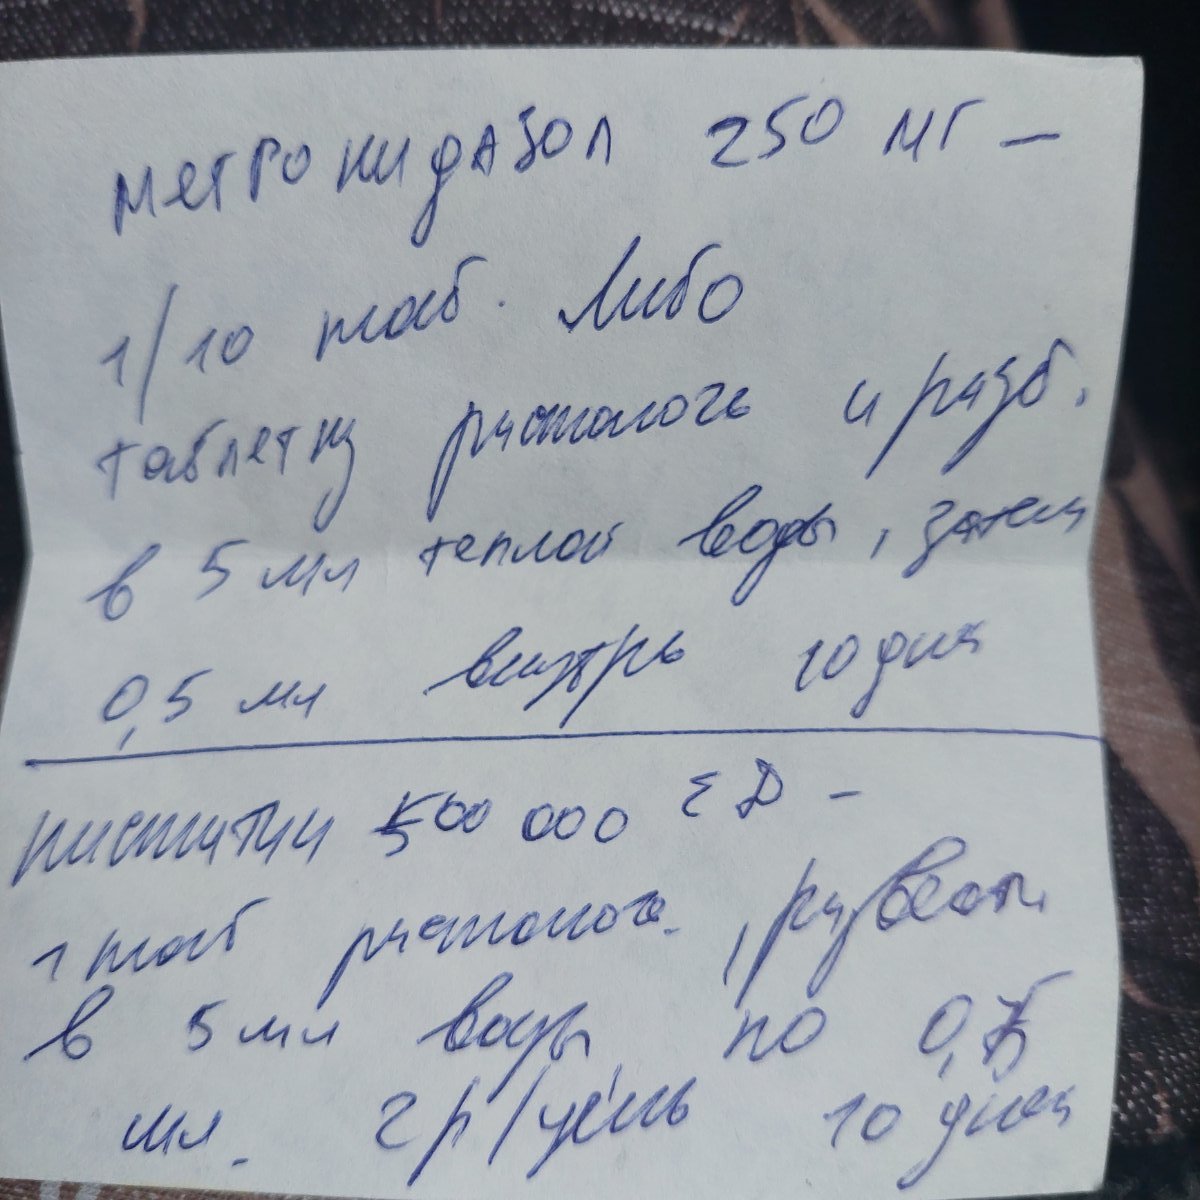 метронидазол 250 мг –
1/10 таб. либо
таблетку растолочь и разб.
в 5 мл теплой воды, затем
0,5 мл внутрь 10 дней
нистатин 500 000 ЕД –
1 таб растолочь, развести
в 5 мл воды по 0,5
мл. 2 р/день 10 дней